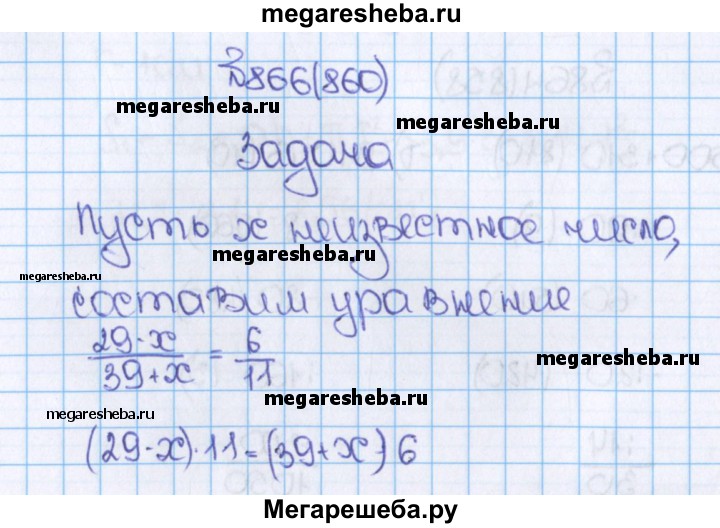 megaresheba.ru
№866(860)
megaresheba.ru
megaresheba.ru
Задача
Пусть x неизвестное число,
megaresheba.ru
megaresheba.ru
составим уравнение
(29-x)/(39+x) = 6/11
megaresheba.ru
megaresheba.ru
megaresheba.ru
(29-x)·11=(39+x)·6
Мегарешеба.ру